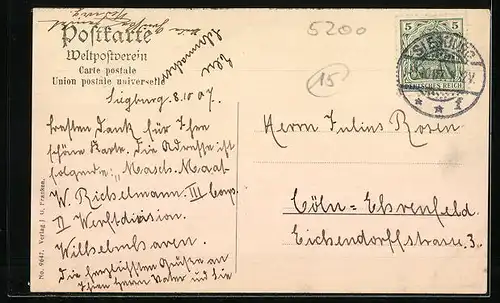 5200
Postkarte
Weltpostverein
Carte postale
Union postale universelle
15
5 5
SIEGBURG
DEUTSCHES REICH
* * 1
Siegburg 8.10.07.
Besten Dank für Ihre
schöne Karte. Die Adresse ist
folgende: "Masch. Maat
W. Richelmann. III Comp.
II Werftdivision.
Wilhelmshaven.
Die herzlichsten Grüße an
Ihren Herrn Vater und Sie
Herrn Julius Rosen
Cöln=Ehrenfeld.
Eichendorffstrasse 3.
No. 9647. Verlag J. G. Franken.